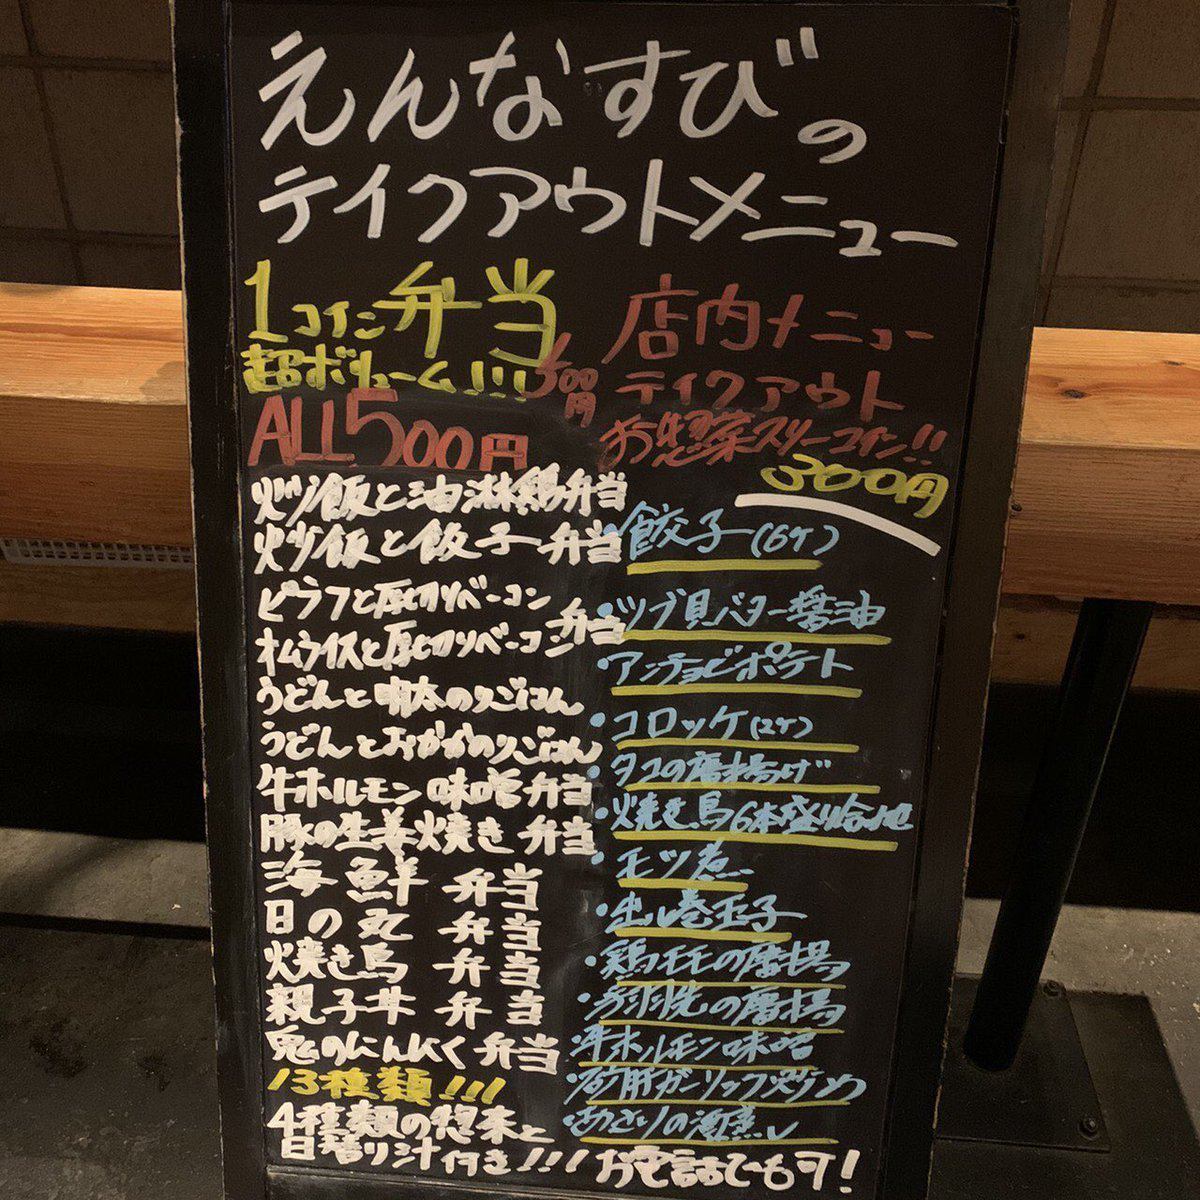 えんなすびの
テイクアウトメニュー
1コイン弁当
超ボリューム!!!
500円
ALL500円
炒飯と油淋鶏弁当
炒飯と餃子弁当
ピラフと厚切りベーコン
オムライスと厚切りベーコン弁当
うどんと明太のりごはん
うどんとおかかのりごはん
牛ホルモン味噌弁当
豚の生姜焼き弁当
海鮮弁当
日の丸弁当
焼き鳥弁当
親子丼弁当
鬼のにんにく弁当
13種類!!!
4種類の惣菜と
日替り汁付き!!!
店内メニュー
テイクアウト
お惣菜スリーコイン!!
300円
・餃子(6ケ)
・ツブ貝バター醤油
・アンチョビポテト
・コロッケ(2ケ)
・タコの唐揚げ
・焼き鳥6本盛り合わせ
・モツ煮
・出し巻玉子
・鶏モモの唐揚
・手羽先の唐揚
・牛ホルモン味噌
・砂肝ガーリック炒め
・あさりの酒蒸し
お電話でもす!